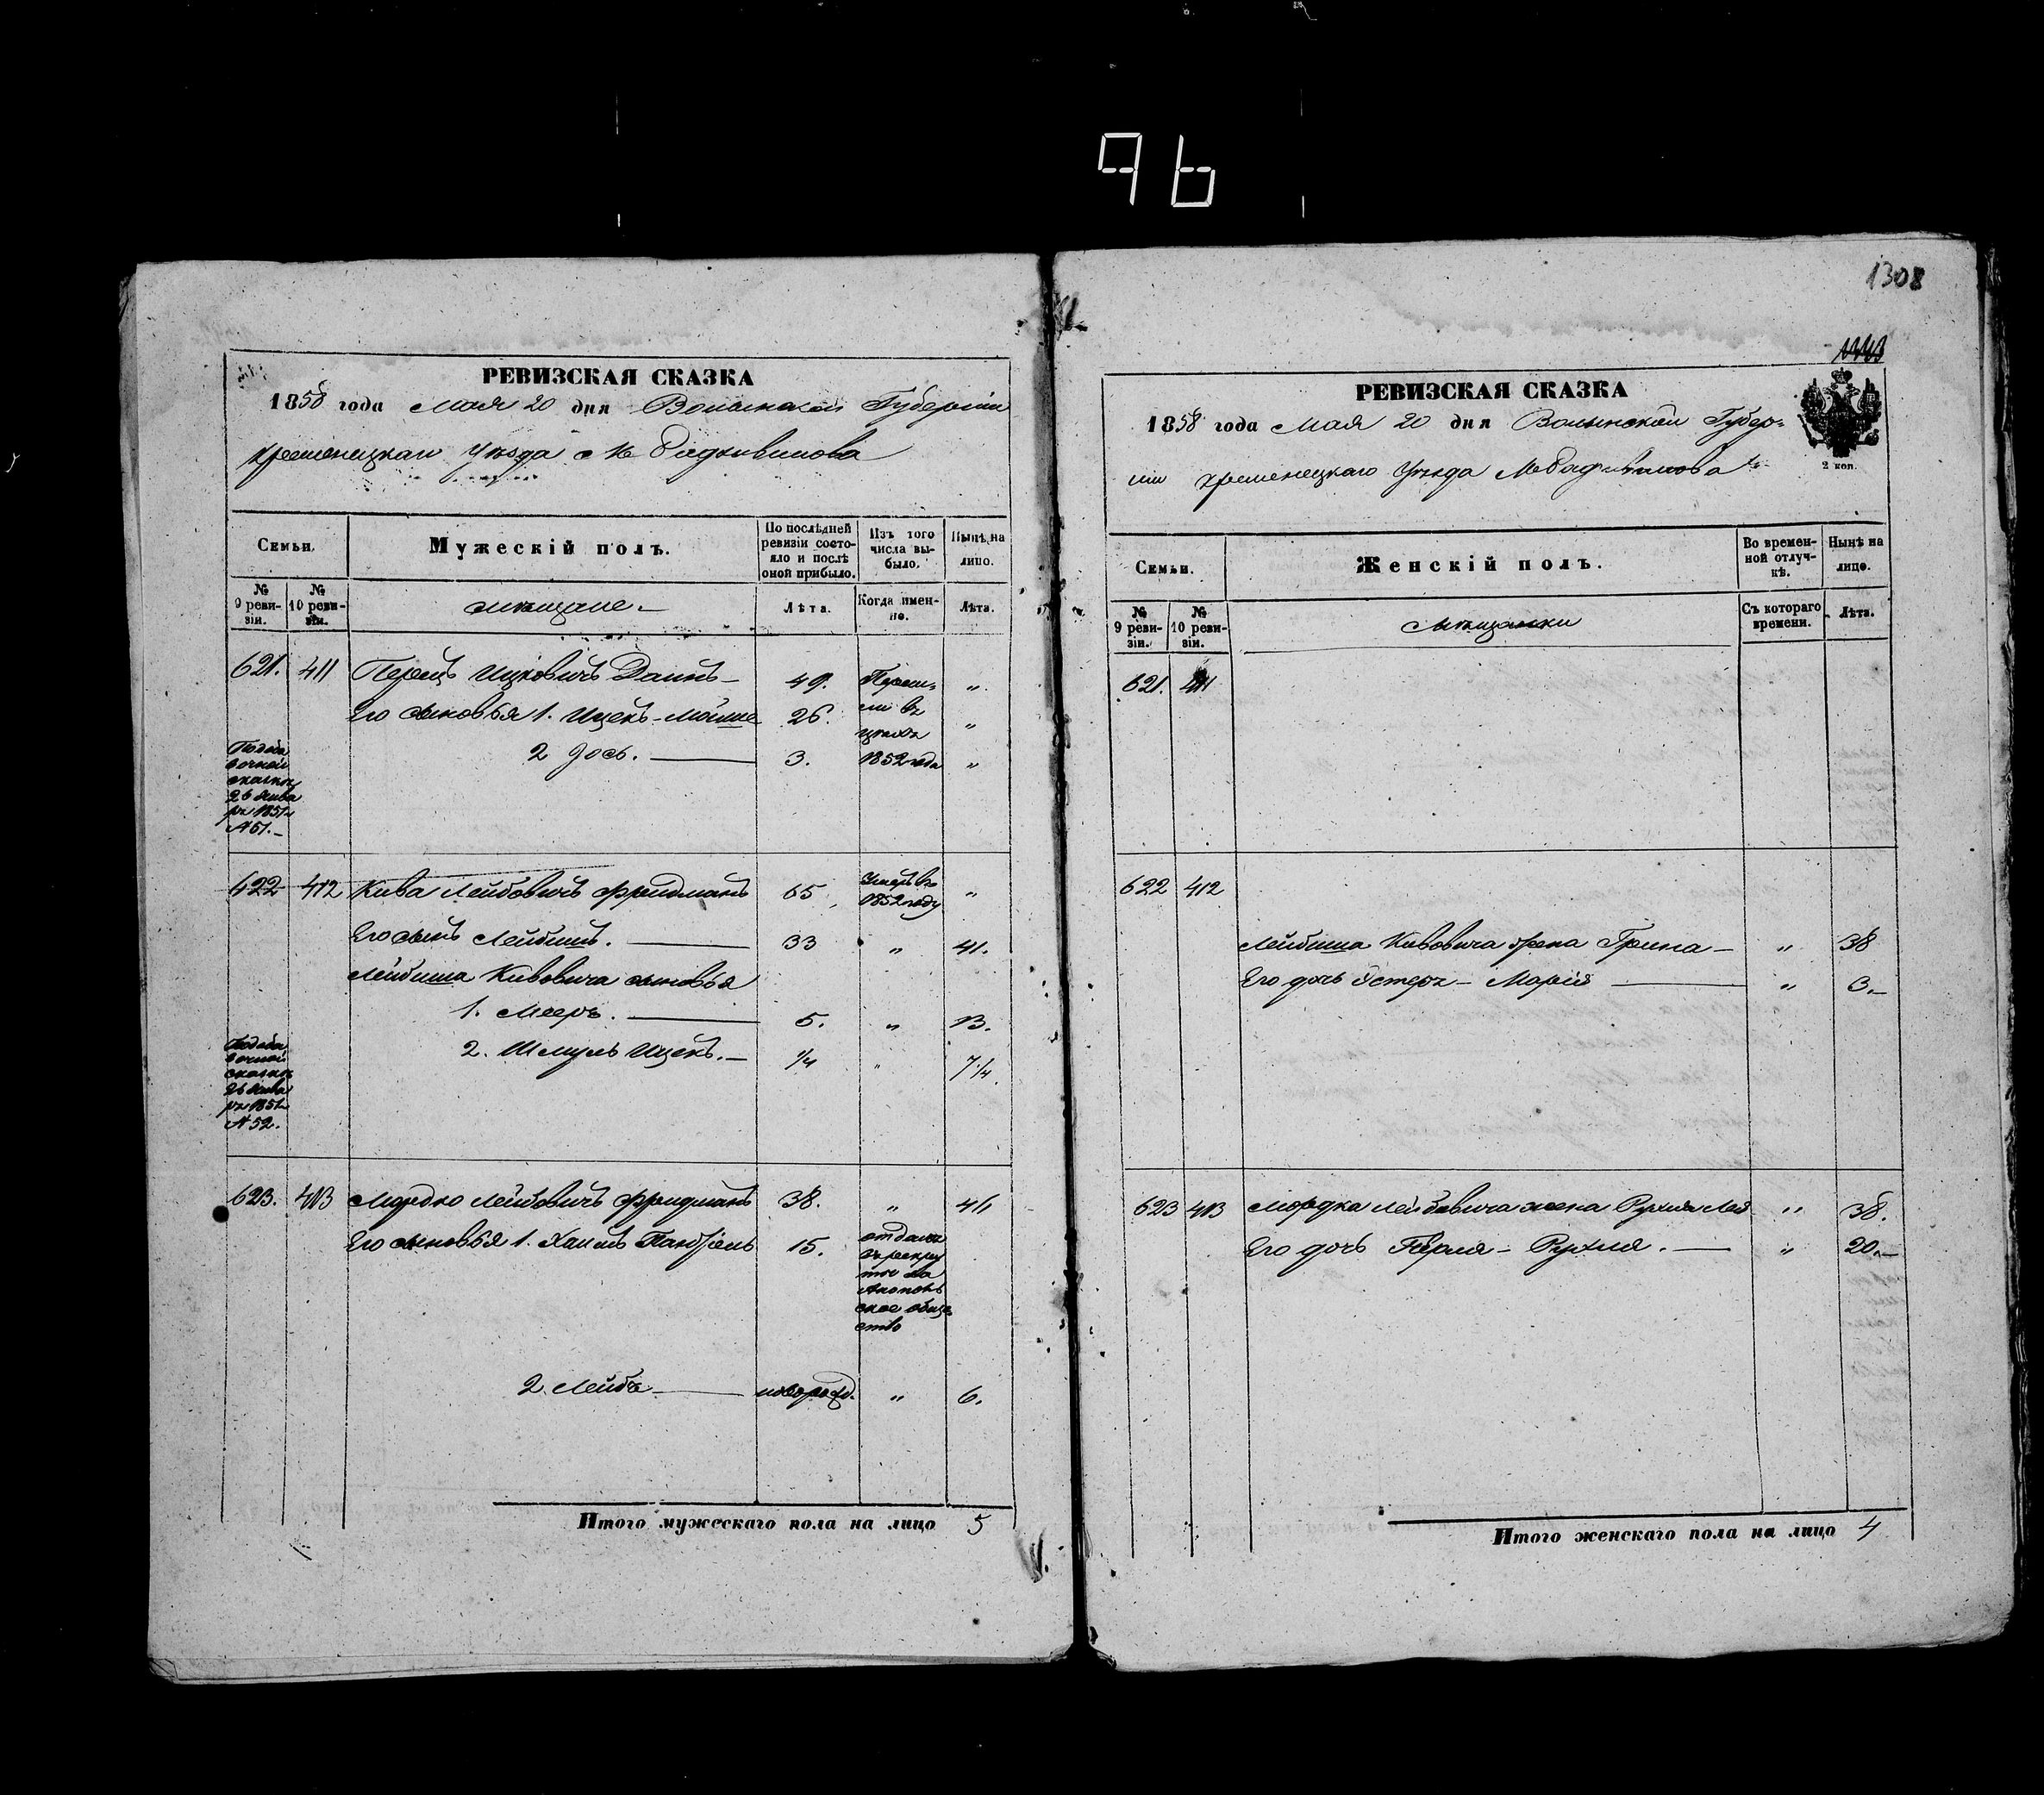 96
1308
РЕВИЗСКАЯ СКАЗКА
1858 года Мая 20 дня Волынской Губерніи
Кременецкаго Уѣзда М. Радзивилова
Семьи.
Мужескій полъ.
По послѣдней ревизіи состояло и послѣ оной прибыло.
Изъ того числа выбыло.
Нынѣ на лицо.
№ 9 ревизіи.
№ 10 ревизіи.
мѣщане.
Лѣта.
Когда именно.
Лѣта.
621. 411 Перецъ Ицковичъ 49. „
Его сыновья 1. Ицекъ-Мошко 26. „
2 Іось. 3. 1852 года „
сказкѣ
26 Янва
ря 1851
№ 51.
622 412 Кива Лейбовичъ Фридманъ 65 Умеръ въ 1852 году „
Его сынъ Лейбишъ. 33 „ 41.
Лейбиша Кивовича сыновья
1. Мееръ. 5. „ 13.
2. Шмуль Ицекъ. 1/4 „ 7 1/4.
сказкѣ
26 Янва
ря 1851
№ 52.
623. 413 Мордко Лейбовичъ Фридманъ 38. „ 46
Его сыновья 1. Хаимъ 15. отданъ
въ рекру
ты за
ское обще
ство
2. Лейба новорожд. „ 6.
Итого мужескаго пола на лицо 5
РЕВИЗСКАЯ СКАЗКА
1858 года Мая 20 дня Волынской Губер-
ніи Кременецкаго Уѣзда М. Радзивилова
2 коп.
Семьи.
Женскій полъ.
Во временной отлучкѣ.
Нынѣ на лицо.
№ 9 ревизіи.
№ 10 ревизіи.
мѣщанки
Съ котораго времени.
Лѣта.
621. 411
622 412
Лейбиша Кивовича жена „ 38
Его дочь Эстеръ-Марія „ 3.
623 413 Мордка Лейбовича жена Рухля Лея „ 38.
Его дочь Перля-Рухля. „ 20.
Итого женскаго пола на лицо 4